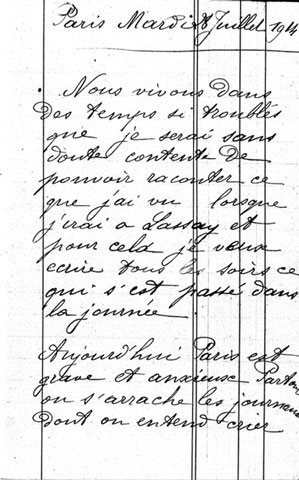 Paris Mardi 28 Juillet 1914
Nous vivons dans
des temps si troublés
que je serai sans
doute contente de
pouvoir raconter ce
que j'ai vu lorsque
j'irai a Lassay et
pour cela je veux
ecrire tous les soirs ce
qui s'est passé dans
la journée.
Aujourd'hui Paris est
grave et anxieux Partout
on s'arrache les journaux
dont on entend crier